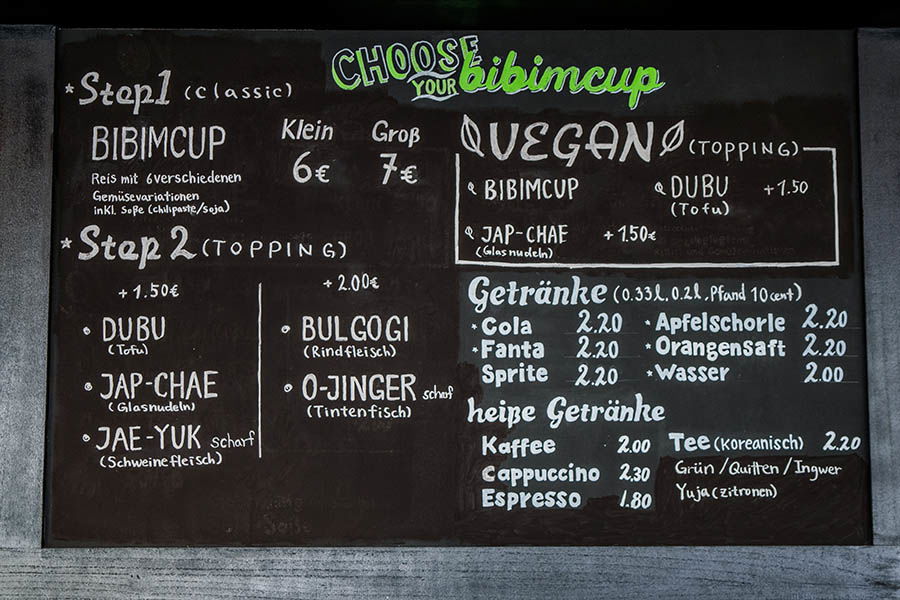 CHOOSE
YOUR bibimcup
* Step 1 (classic)
BIBIMCUP Klein Groß
6€ 7€
Reis mit 6 verschiedenen
Gemüsevariationen
inkl. Soße (chilipaste/soja)
* Step 2 (TOPPING)
+1.50€
DUBU
(Tofu)
JAP-CHAE
(Glasnudeln)
JAE-YUK scharf
(Schweinefleisch)
+2.00€
BULGOGI
(Rindfleisch)
O-JINGER scharf
(Tintenfisch)
VEGAN (TOPPING)
BIBIMCUP DUBU +1.50
(Tofu)
JAP-CHAE +1.50€
(Glasnudeln)
Getränke (0.33l, 0.2l, Pfand 10cent)
* Cola 2.20 * Apfelschorle 2.20
* Fanta 2.20 * Orangensaft 2.20
Sprite 2.20 * Wasser 2.00
heiße Getränke
Kaffee 2.00 Tee (Koreanisch) 2.20
Cappuccino 2.30 Grün/Quitten/Ingwer
Espresso 1.80 Yuja (zitronen)